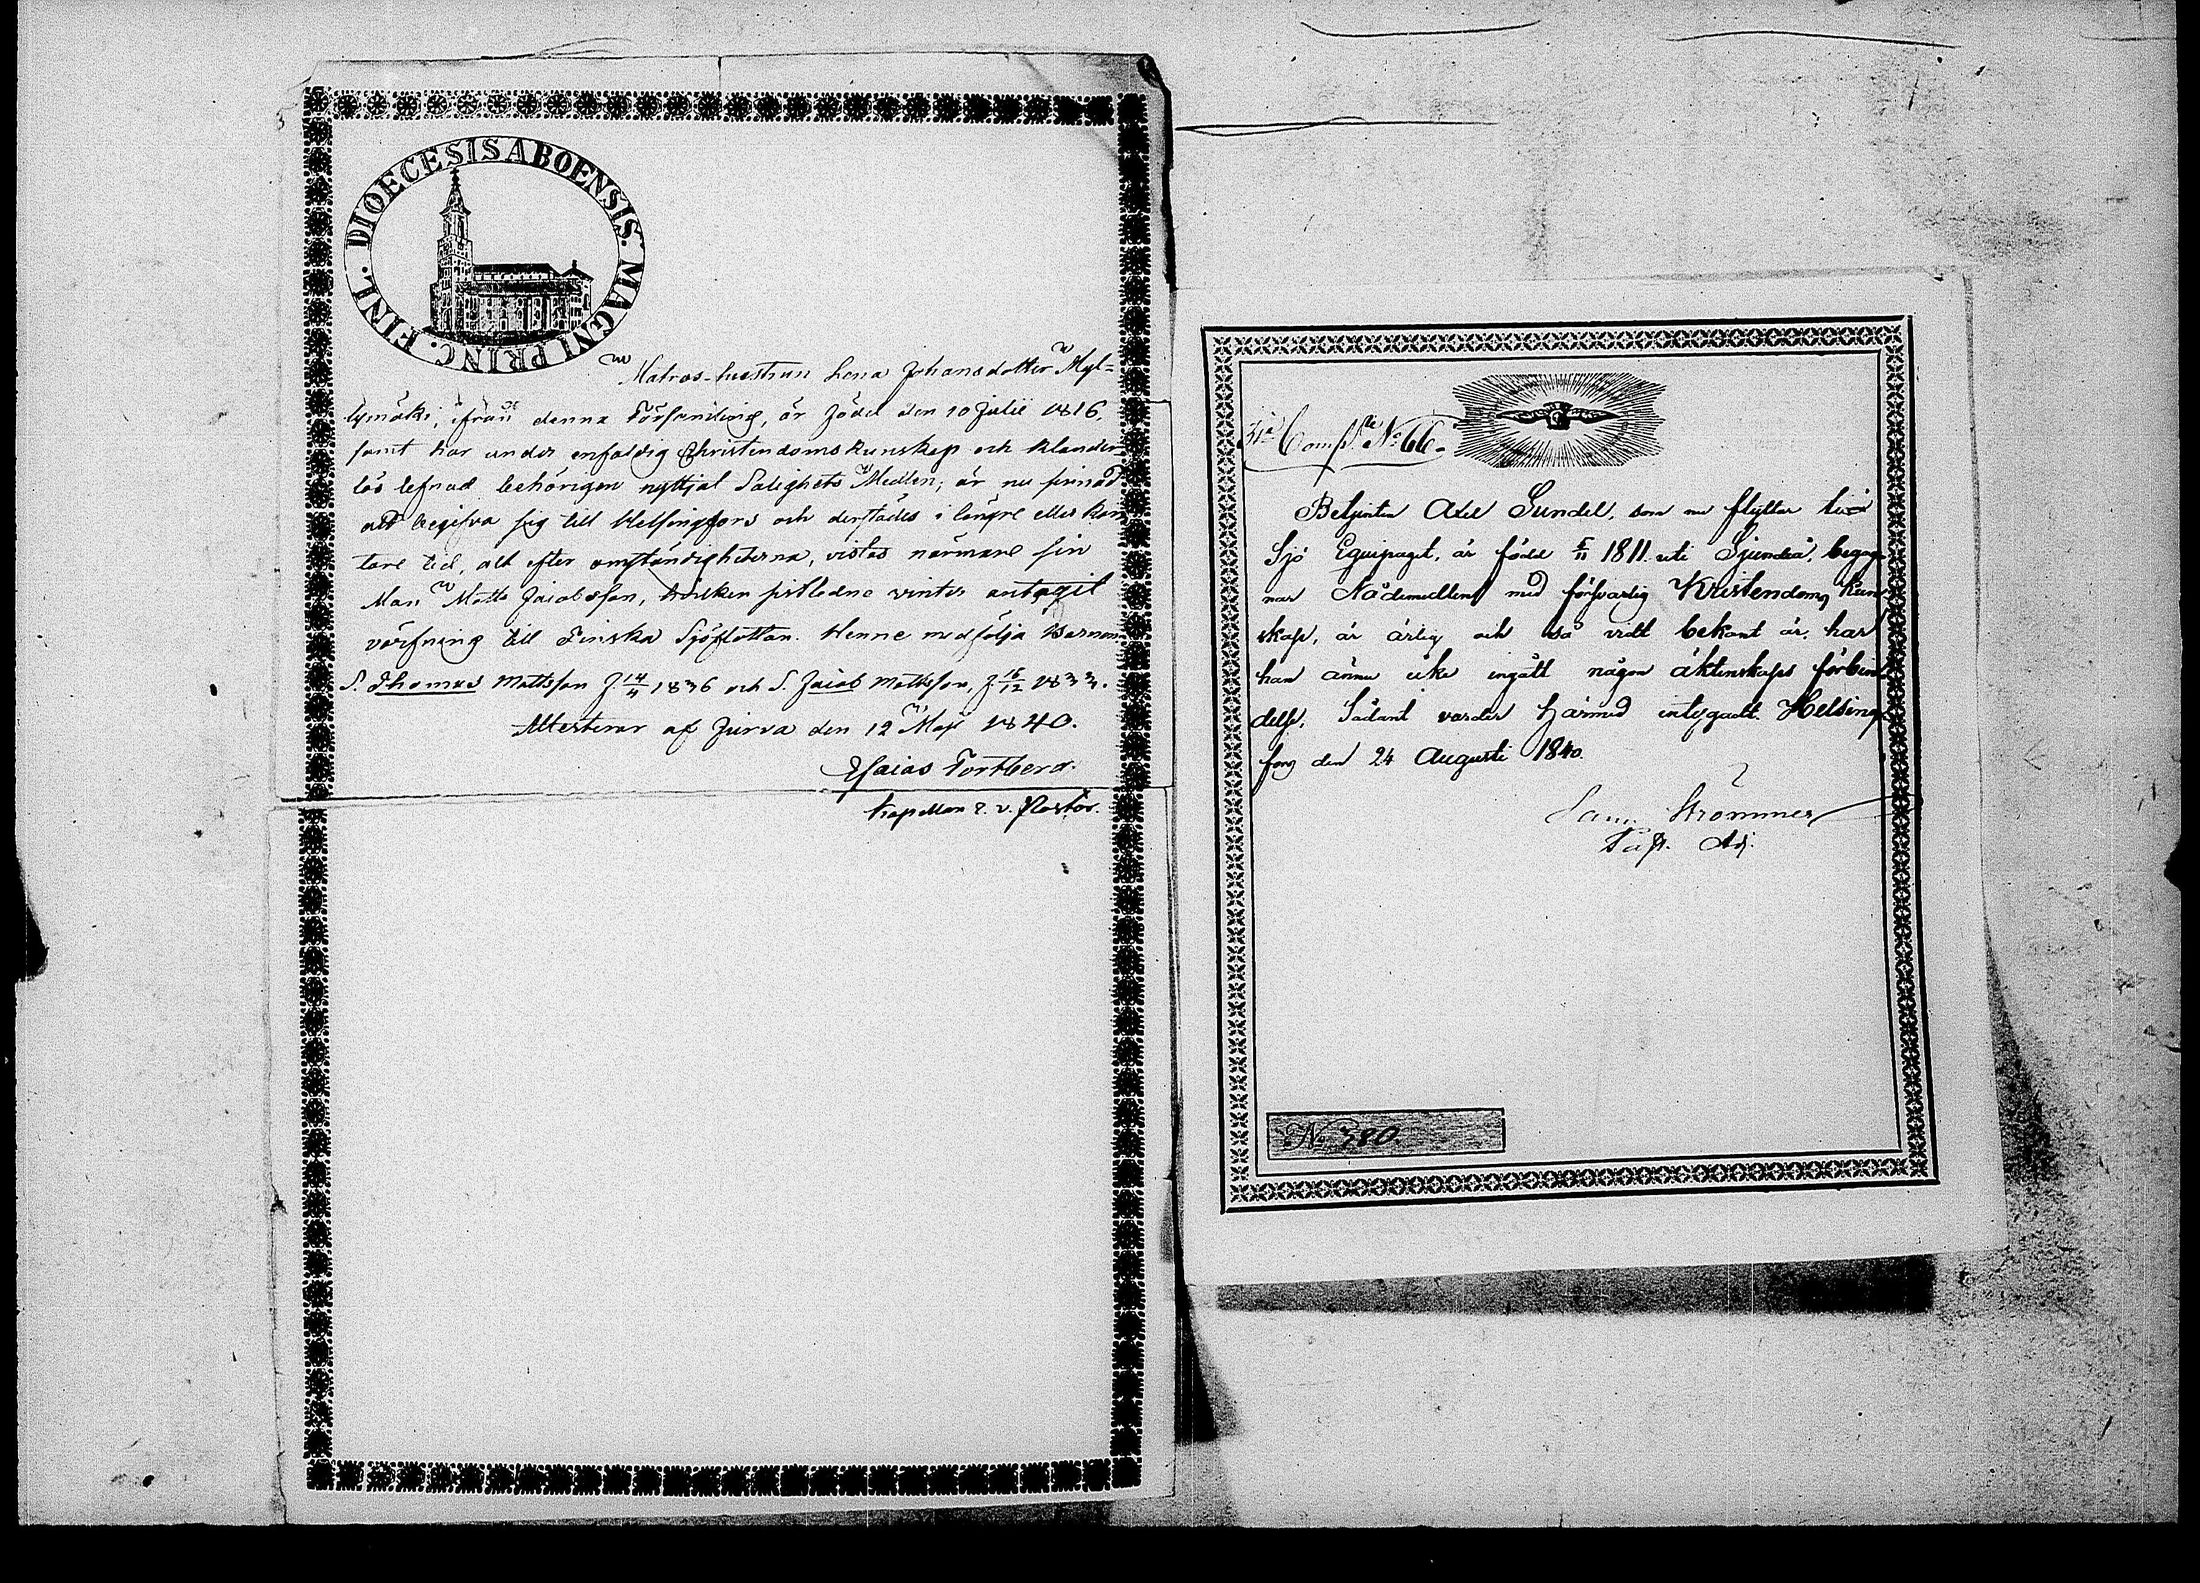 DIOECESIS ABOENSIS. MAGNI PRINC. FINL.
Matros-hustrun Lena Johansdotter Myl=
lymäki, ifrån denna Församling, är född den 10 Julii 1816,
samt har under enfaldig Christendomskunskap och klander
lös lefnad behörigen nyttjat Salighets Medlen; är nu sinnad
att begifva sig till Helsingfors och derstädes i längre eller kor
tare tid, alt efter omständigheterna, vistas närmare sin
Man Matts Jacobsson, hvilken sistledne vinter antagit
värfning till Finska Sjöflottan. Henne medfölja Barnen
S. Thomas Mattsson f. 14/4 1836 och S. Jacob Mattsson, f. 16/12 1833.
Attesterar af Jurva den 12 Maji 1840.
Esaias Tortberg.
Kapellan o. v. Pastor.
31a Comp. No 66.
Betjenten Adel Sundel, som nu flyttar till
Sjö Equipaget, är född 5/11 1811 uti Sjundeå, begag
nar Nådemedlen med försvarlig Kristendoms kun
skap, är ärlig och så vidt bekant är, har
han ännu icke ingått någon äktenskaps förbin
delse, Sådant varder härmed intygadt. Helsing
fors den 24 Augusti 1840.
Sam. Strömmer
Past. Adj.
No 380